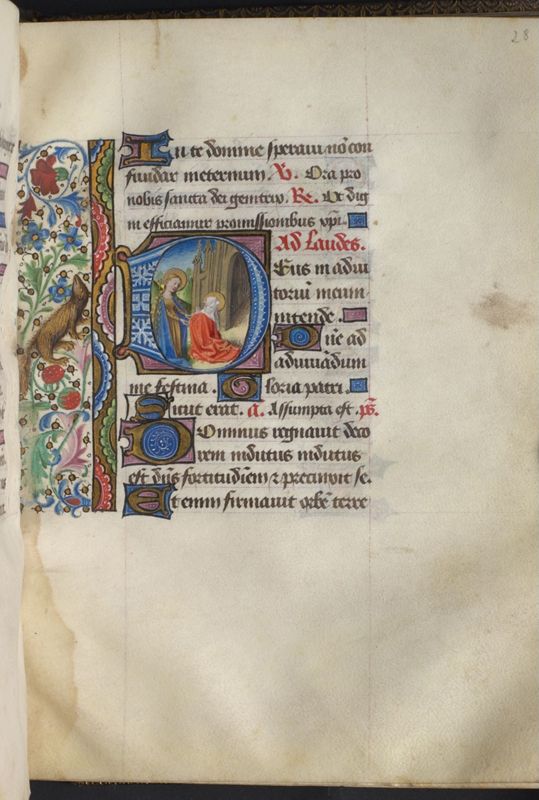 28
In te domine speraui nō con
fundar ineternum. V. Ora pro
nobis sancta dei genitrix. Re. Vt dig
ni efficiamur promissionibus xpi.
Ad Laudes.
Deus in adiu
toriū meum
intende.
Dn̄e ad
adiuuādum
me festina. Gloria patri.
Sicut erat. a. Assumpta est. ps.
Dominus regnauit deco
rem indutus indutus
est dn̄s fortitudīem z precinxit se.
Et enim firmauit orbē terre